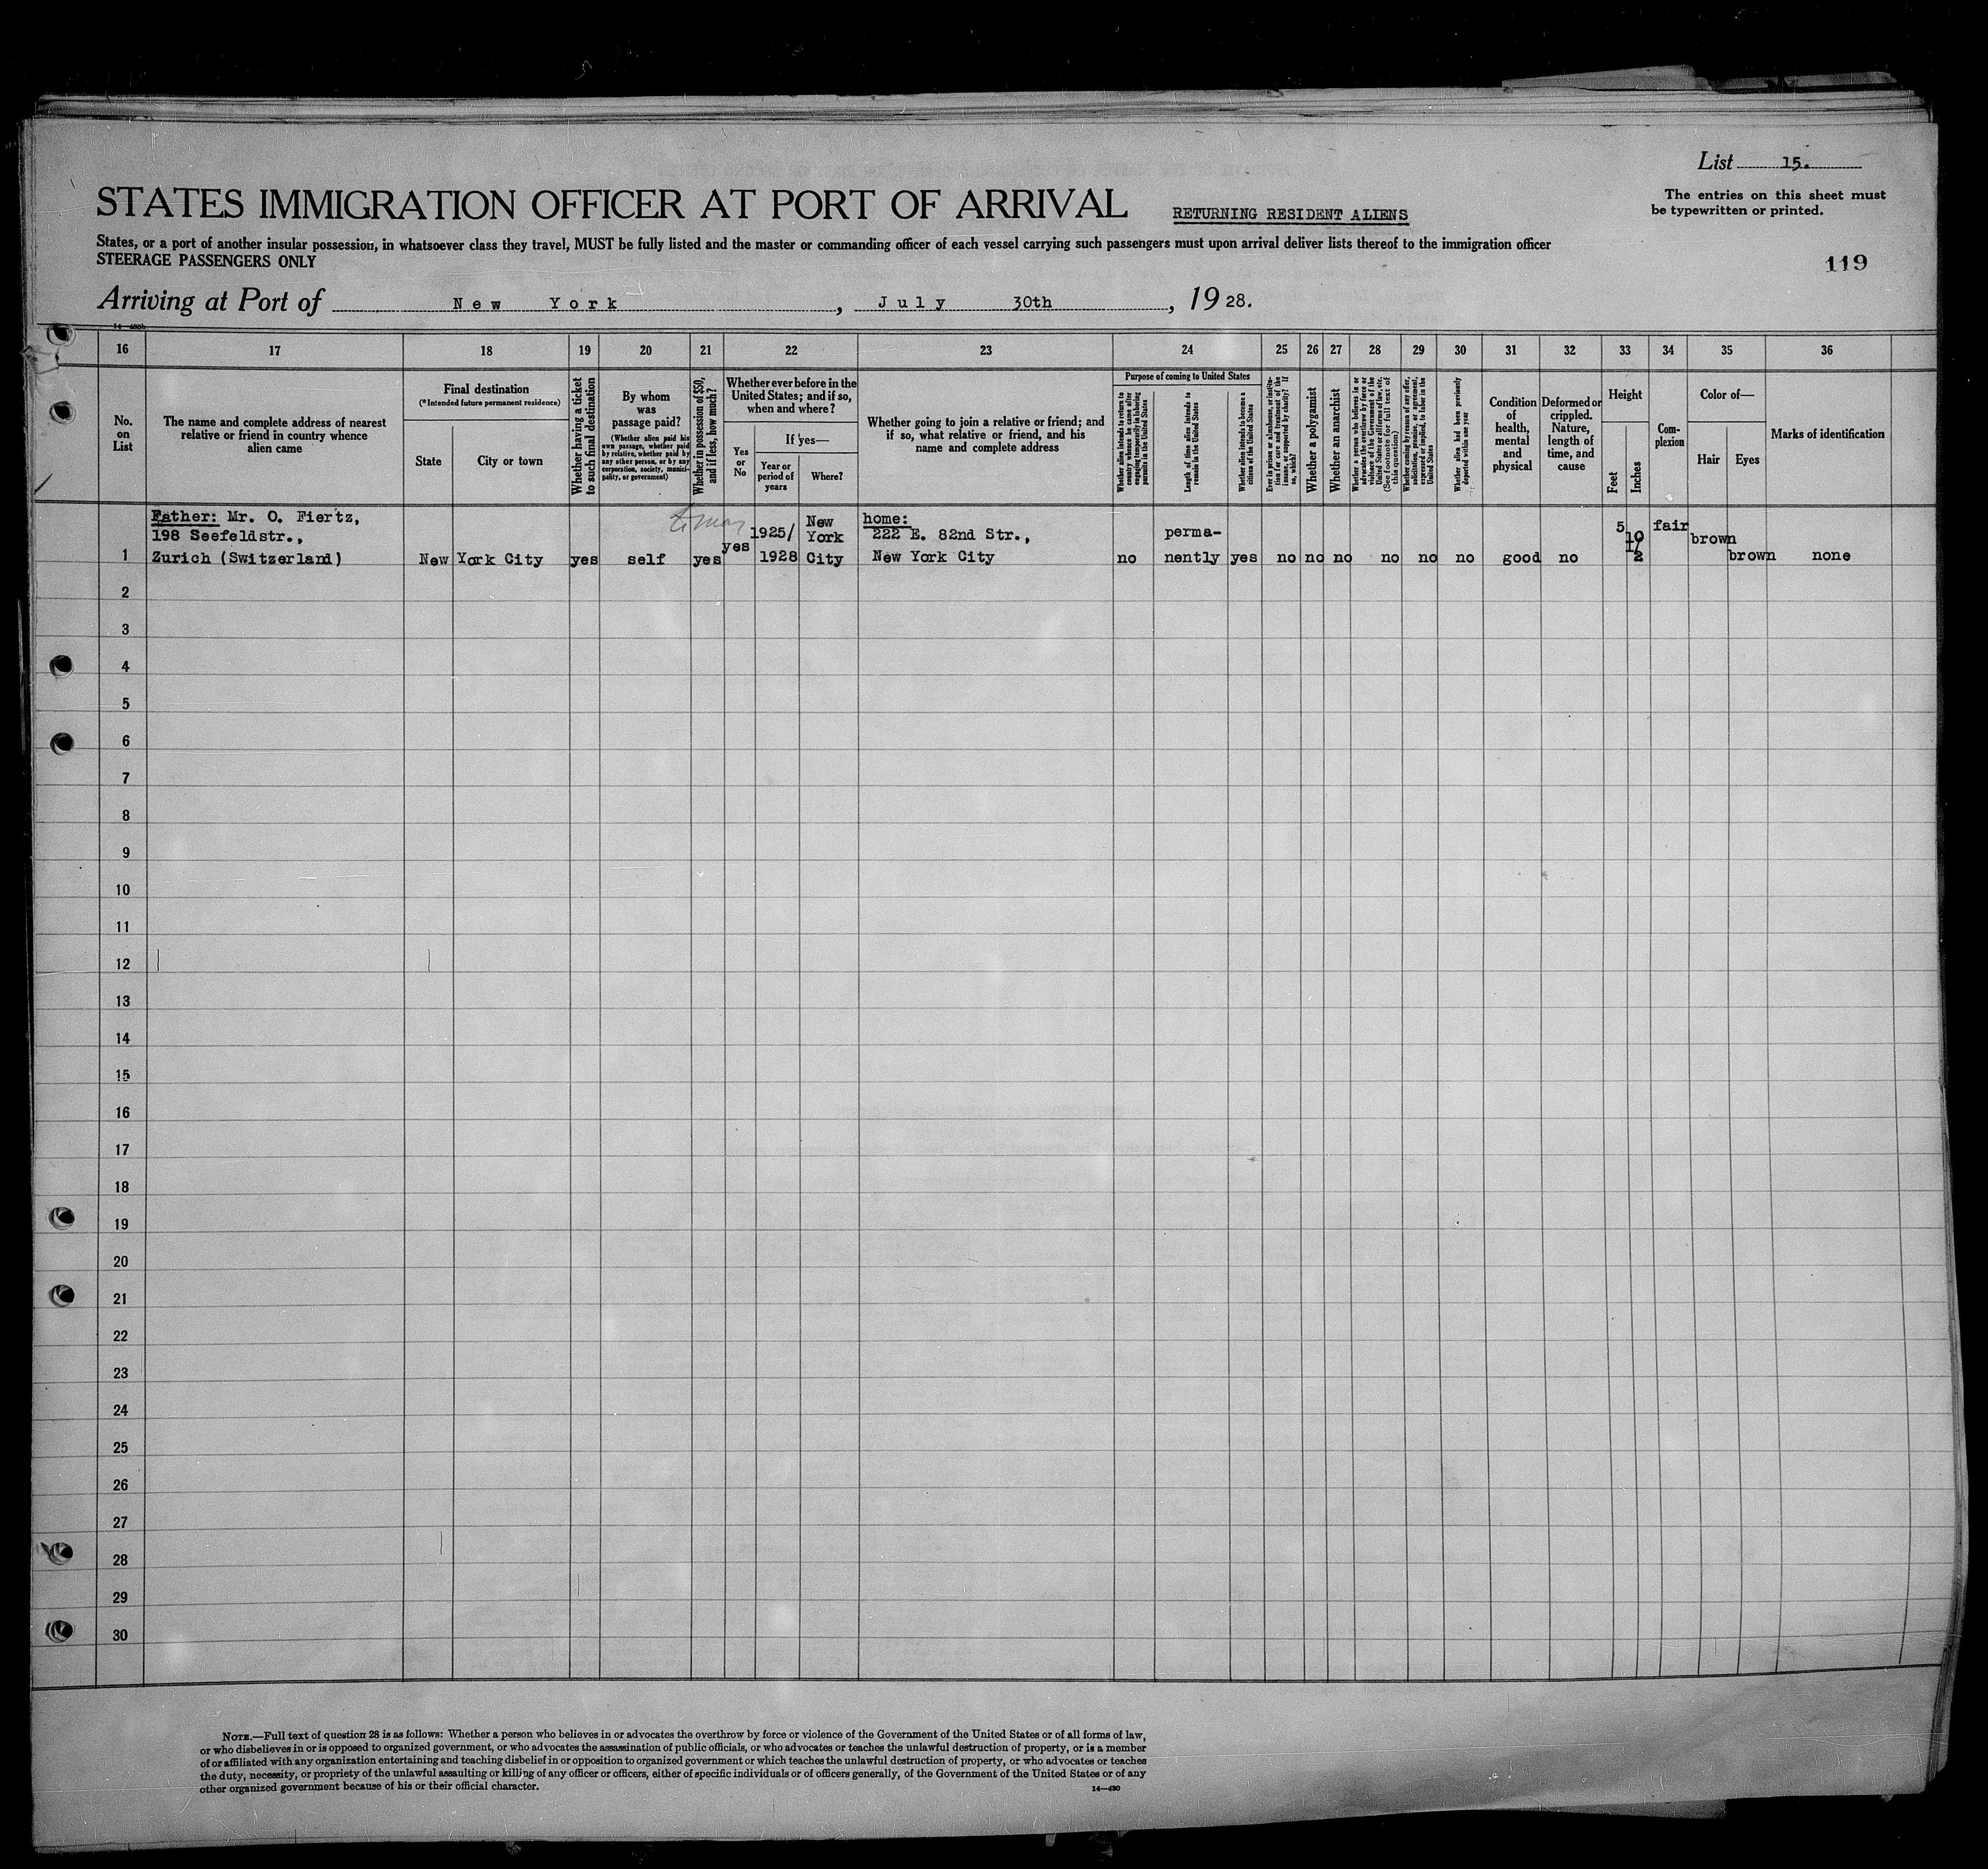 List 15.
STATES IMMIGRATION OFFICER AT PORT OF ARRIVAL
RETURNING RESIDENT ALIENS
The entries on this sheet must
be typewritten or printed.
States, or a port of another insular possession, in whatsoever class they travel, MUST be fully listed and the master or commanding officer of each vessel carrying such passengers must upon arrival deliver lists thereof to the immigration officer
STEERAGE PASSENGERS ONLY
119
Arriving at Port of New York, July 30th, 1928.
16 17 18 19 20 21 22 23 24 25 26 27 28 29 30 31 32 33 34 35 36
No.
on
List
The name and complete address of nearest
relative or friend in country whence
alien came
Final destination
(*Intended future permanent residence)
State
City or town
Whether having a ticket
to such final destination
By whom
was
passage paid?
(Whether alien paid his
own passage, whether paid
by relative, whether paid by
any other person, or by any
corporation, society, munici-
pality, or government)
Whether in possession of $50,
and if less, how much?
Whether ever before in the
United States; and if so,
when and where?
Yes
or
No
If yes—
Year or
period of
years
Where?
Whether going to join a relative or friend; and
if so, what relative or friend, and his
name and complete address
Purpose of coming to United States
Whether alien intends to return to
country whence he came after
engaging temporarily in laboring
pursuits in the United States
Length of time alien intends to
remain in the United States
Whether alien intends to become a
citizen of the United States
Ever in prison or almshouse, or institu-
tion for care and treatment of the
insane, or supported by charity? If
so, which?
Whether a polygamist
Whether an anarchist
Whether a person who believes in or
advocates the overthrow by force or
violence of the Government of the
United States or all forms of law, etc.
(See footnote for full text of
this question)
Whether coming by reason of any offer,
solicitation, promise, or agreement,
expressed or implied, to labor in the
United States
Whether alien had been previously
deported within one year
Condition
of
health,
mental
and
physical
Deformed or
crippled.
Nature,
length of
time, and
cause
Height
Feet
Inches
Com-
plexion
Color of—
Hair
Eyes
Marks of identification
1
Father: Mr. O. Fiertz,
198 Seefeldstr.,
Zurich (Switzerland)
New York City
yes
self
yes
yes
1925/
1928
New
York
City
home:
222 E. 82nd Str.,
New York City
no
perma-
nently
yes
no
no
no
no
no
no
good
no
5
10
1/2
fair
brown
brown
none
2
3
4
5
6
7
8
9
10
11
12
13
14
15
16
17
18
19
20
21
22
23
24
25
26
27
28
29
30
NOTE.—Full text of question 28 is as follows: Whether a person who believes in or advocates the overthrow by force or violence of the Government of the United States or of all forms of law,
or who disbelieves in or is opposed to organized government, or who advocates the assassination of public officials, or who advocates or teaches the unlawful destruction of property, or is a member
of or affiliated with any organization entertaining and teaching disbelief in or opposition to organized government or which teaches the unlawful destruction of property, or who advocates or teaches
the duty, necessity, or propriety of the unlawful assaulting or killing of any officer or officers, either of specific individuals or of officers generally, of the Government of the United States or of any
other organized government because of his or their official character.
14—430